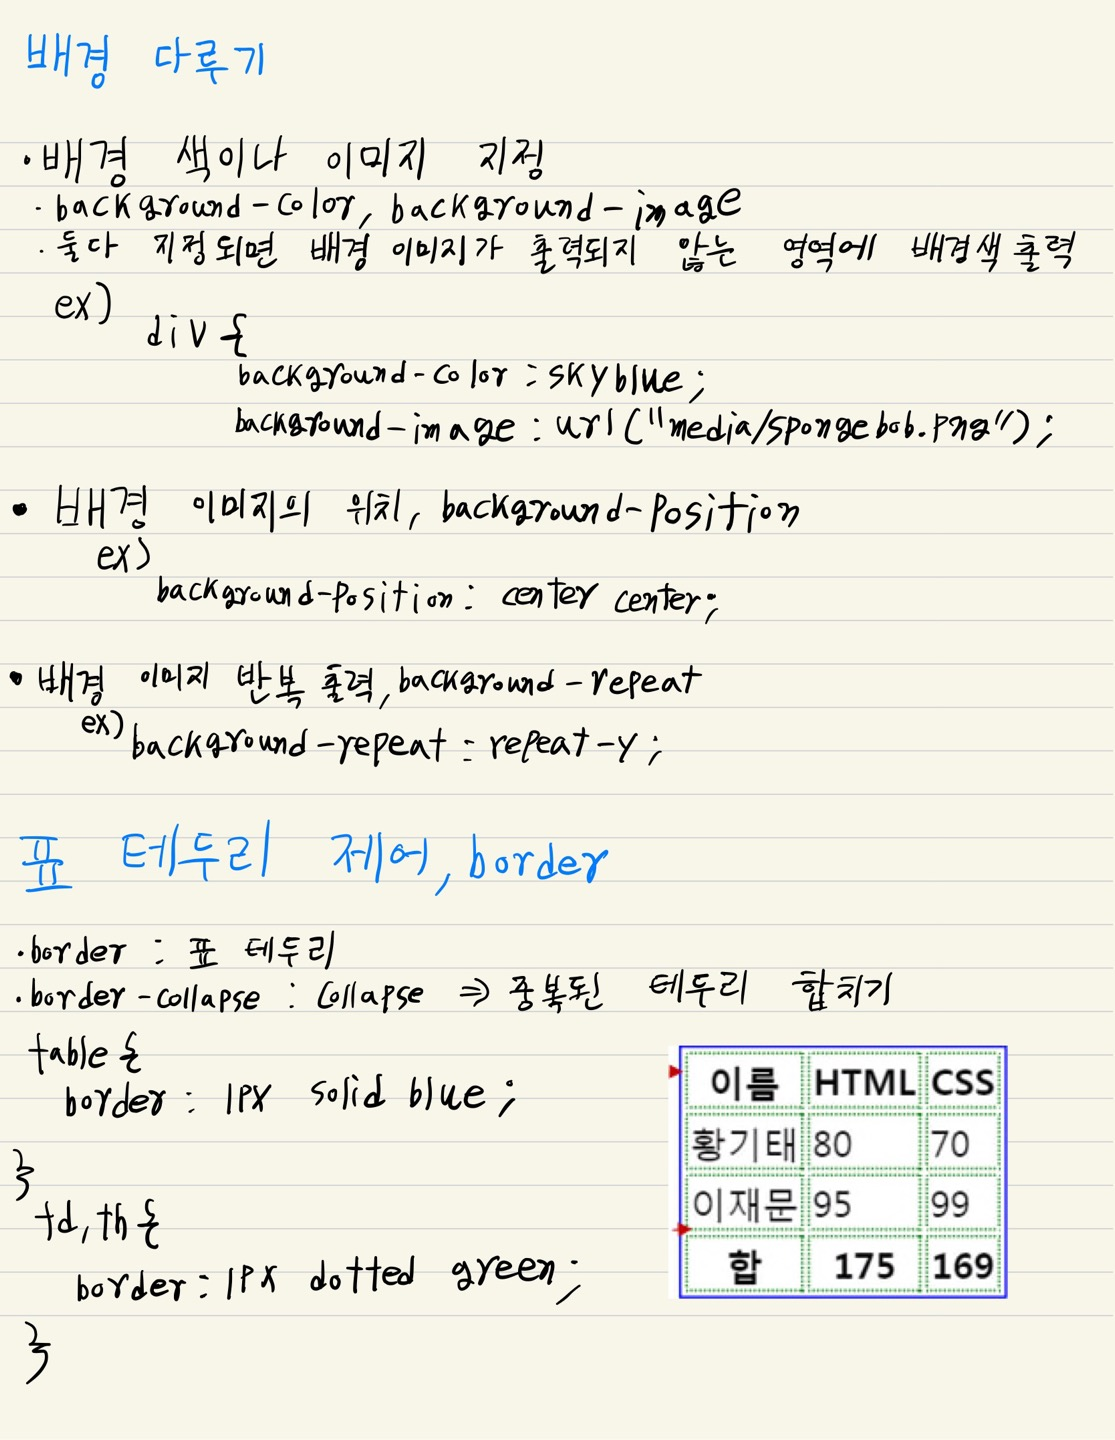 배경 다루기
· 배경 색이나 이미지 지정
· background-color, background-image
· 둘다 지정되면 배경 이미지가 출력되지 않는 영역에 배경색 출력
ex)
div {
background-color : skyblue;
background-image : url("media/spongebob.png");
• 배경 이미지의 위치, background-position
ex)
background-position : center center;
• 배경 이미지 반복 출력, background-repeat
ex)
background-repeat : repeat-y;
표 테두리 제어, border
· border : 표 테두리
· border-collapse : collapse ⇒ 중복된 테두리 합치기
table {
border : 1px solid blue;
}
td, th {
border : 1px dotted green;
}
이름 HTML CSS
황기태 80 70
이재문 95 99
합 175 169